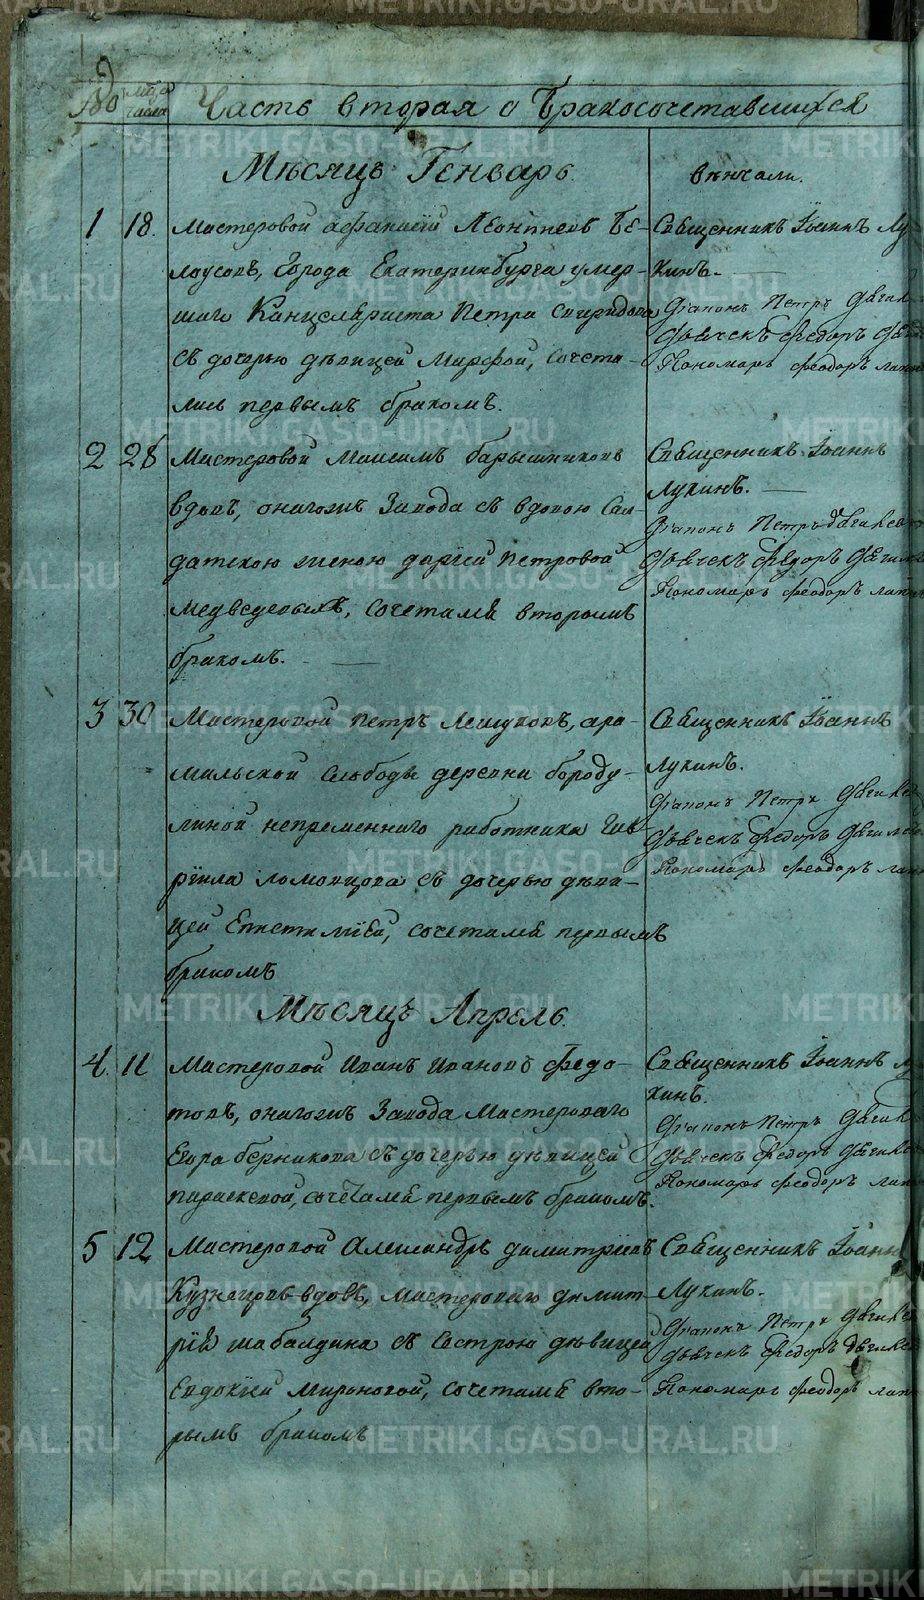 №
числа
Часть вторая о бракосочетавшихся
Мѣсяцъ Генварь.
вѣнчали.
1 18. Мастеровой Афанасій Леонтьевъ Бе-
лоусовъ, города Екатеринбурга умер-
шаго Канцеляриста Петра Спиридова
съ дочерью дѣвицей Марфой, сочета-
лись первымъ бракомъ.
Священникъ Іоаннъ Лу
кинъ.
Диаконъ Петръ
Дьячекъ Федоръ
Пономарь Феодоръ
2 28 Мастеровой Максимъ Барышниковъ
вдовъ, оногожъ Завода съ вдовою Сол-
датскою женою Дарьей Петровой
Медведевыхъ, сочетались вторымъ
бракомъ.
Священникъ Іоаннъ
Лукинъ.
Диаконъ Петръ
Дьячекъ Федоръ
Пономарь Феодоръ
3 30 Мастеровой Петръ Лешуковъ, ара-
мильской Слободы деревни Бороду-
линой непременнаго работника Гав-
рійла Ломовцова съ дочерью дѣви-
цей сочетались первымъ
бракомъ
Священникъ Іоаннъ
Лукинъ.
Диаконъ Петръ
Дьячекъ Федоръ
Пономарь Феодоръ
Мѣсяцъ Апрель.
4. 11 Мастеровой Иванъ Ивановъ Федо-
товъ, оногожъ Завода Мастероваго
Егора Берникова съ дочерью дѣвицей
Параскевой, сочетались первымъ бракомъ.
Священникъ Іоаннъ Лу
кинъ.
Диаконъ Петръ
Дьячекъ Федоръ
Пономарь Феодоръ
5 12 Мастеровой Александръ Димитріевъ
Кузнецовъ вдовъ, Мастероваго Димит-
рія Шабалдина съ Сестрою дѣвицей
Евдокіей Мироновой, сочетались вто-
рымъ бракомъ
Священникъ Іоаннъ
Лукинъ.
Диаконъ Петръ
Дьячекъ Федоръ
Пономарь Феодоръ
METRIKI.GASO-URAL.RU